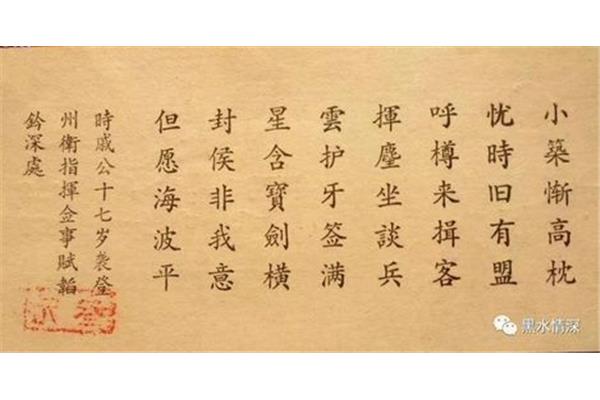 小築慚高枕
忧時旧有盟
呼樽来揖客
揮麈坐談兵
雲护牙签满
星含寶劍横
封侯非我意
但愿海波平
時戚公十七岁袭登
州衛指揮佥事赋韜
鈐深處
黑水情深